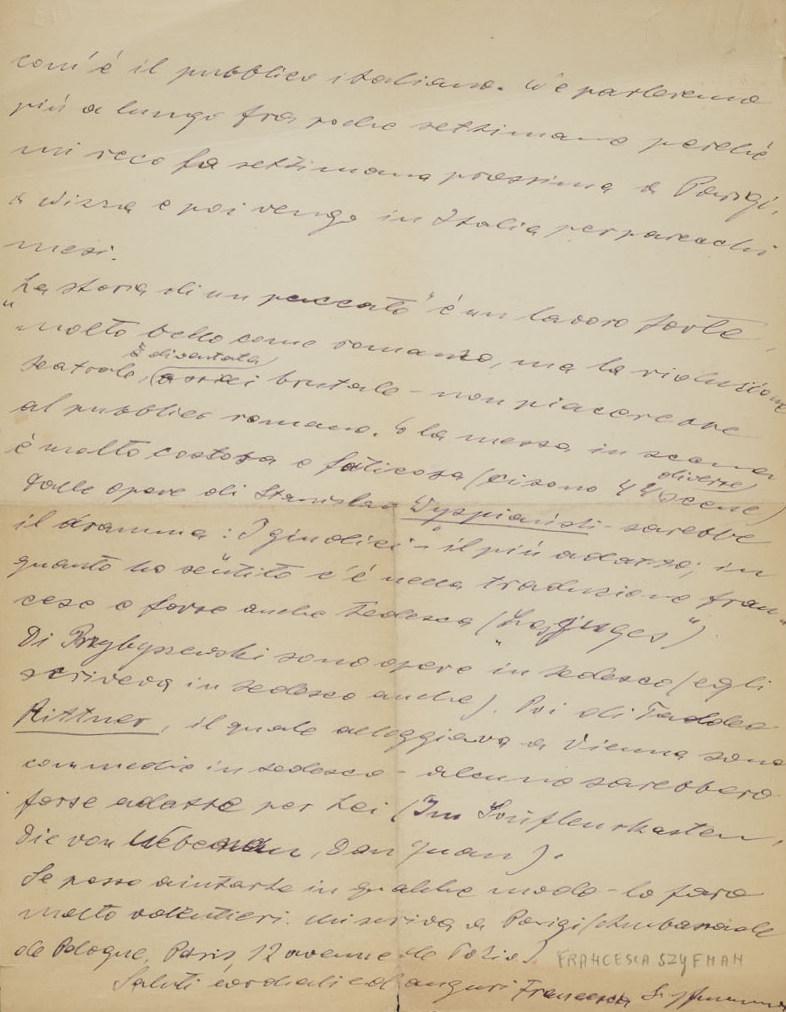 com'è il pubblico italiano. Ne parleremo
più a lungo fra poche settimane perchè
mi reco la settimana prossima a Parigi,
a Nizza e poi vengo in Italia per parecchi
mesi.
"La storia di un peccato" è un lavoro forte,
molto bello come romanzo, ma la riduzione
è diventata
teatrale, brutale - non piacerebbe
al pubblico romano. E la messa in scena
è molto costosa e faticosa (ci sono 44 scene)
diverse
Dalle opere di Stanislao Wyspiański - sarebbe
il dramma: "I giudici" - il più adatto; in
quanto ho sentito c'è nella traduzione fran-
cese e forse anche tedesca ("Les juges").
Di Przybyszewski sono opere in tedesco (egli
scriveva in tedesco anche). Poi di Taddeo
Rittner, il quale alloggiava a Vienna sono
commedie in tedesco - alcune sarebbero
forse adatte per Lei (Im Souffleurkasten,
Die von Don Juan).
Se posso aiutarLa in qualche modo - lo farò
molto volentieri. Mi scriva a Parigi (Ambassade
de Pologne, Paris, 12 avenue de Tokio)
FRANCESCA SZYFMAN
Saluti cordiali ed auguri Francesca Szyfmanowa